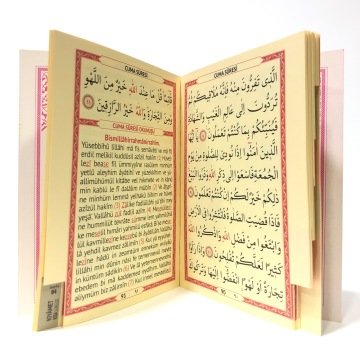 CUMA SÛRESİ
الَّذِي تَفِرُّونَ مِنْهُ فَإِنَّهُ مُلَاقِيكُمْ ثُمَّ
تُرَدُّونَ إِلَى عَالِمِ الْغَيْبِ وَالشَّهَادَةِ
فَيُنَبِّئُكُمْ بِمَا كُنْتُمْ تَعْمَلُونَ ﴿٨﴾ يَا أَيُّهَا
الَّذِينَ آمَنُوا إِذَا نُودِيَ لِلصَّلٰوةِ مِنْ يَوْمِ
الْجُمُعَةِ فَاسْعَوْا إِلَى ذِكْرِ اللّٰهِ وَذَرُوا الْبَيْعَ
ذٰلِكُمْ خَيْرٌ لَكُمْ إِنْ كُنْتُمْ تَعْلَمُونَ ﴿٩﴾
فَإِذَا قُضِيَتِ الصَّلٰوةُ فَانْتَشِرُوا فِي الْأَرْضِ
وَابْتَغُوا مِنْ فَضْلِ اللّٰهِ وَاذْكُرُوا اللّٰهَ
كَثِيرًا لَعَلَّكُمْ تُفْلِحُونَ ﴿١٠﴾ وَإِذَا رَأَوْا
تِجَارَةً أَوْ لَهْوًا انْفَضُّوا إِلَيْهَا وَتَرَكُوكَ
CUMA SÛRESİ
قَائِمًا قُلْ مَا عِنْدَ اللّٰهِ خَيْرٌ مِنَ اللَّهْوِ
وَمِنَ التِّجَارَةِ وَاللّٰهُ خَيْرُ الرَّازِقِينَ ﴿١١﴾
CUMA SÛRESİ OKUNUŞU
Bismillâhirrahmânirrahîm.
Yüsebbihû lillâhi mâ fis semâvâti ve mâ fil
erdıl melikil kuddûsil azîzil hakîm (1) Hüvel
lezî bease fil ümmiyyîne rasûlen minhüm
yetlû aleyhim âyâtihî ve yüzekkîhim ve yü-
allimühümül kitâbe vel hikmete ve in kânû
min kablü le fî dalâlim mübîn (2) Ve âharî-
ne minhüm lemmâ yelhakû bihim ve hüvel
azîzül hakîm (3) Zâlike fadlullâhi yü'tîhi mey
yeşâ'. Vallâhü zül fadlil azîm (4) Meselüllezî-
ne hummilüt tevrâte sümme lem yahmilûhâ
ke meselil himâri yahmilü esfârâ. Bi'se meselül
kavmillezîne kezzebû bi âyâtillâh. Vallâhü
lâ yehdil kavmez zâlimîn (5) Kul yâ eyyühel-
lillâhi min dûnin nâsi fe temennevül mevte in
küntüm sâdikîn (6) Ve lâ yetemennevnehû
ebedem bi mâ kaddemet eydîhim. Vallâhü
alîymüm biz zâlimîn (7)
95
KIYÂMET